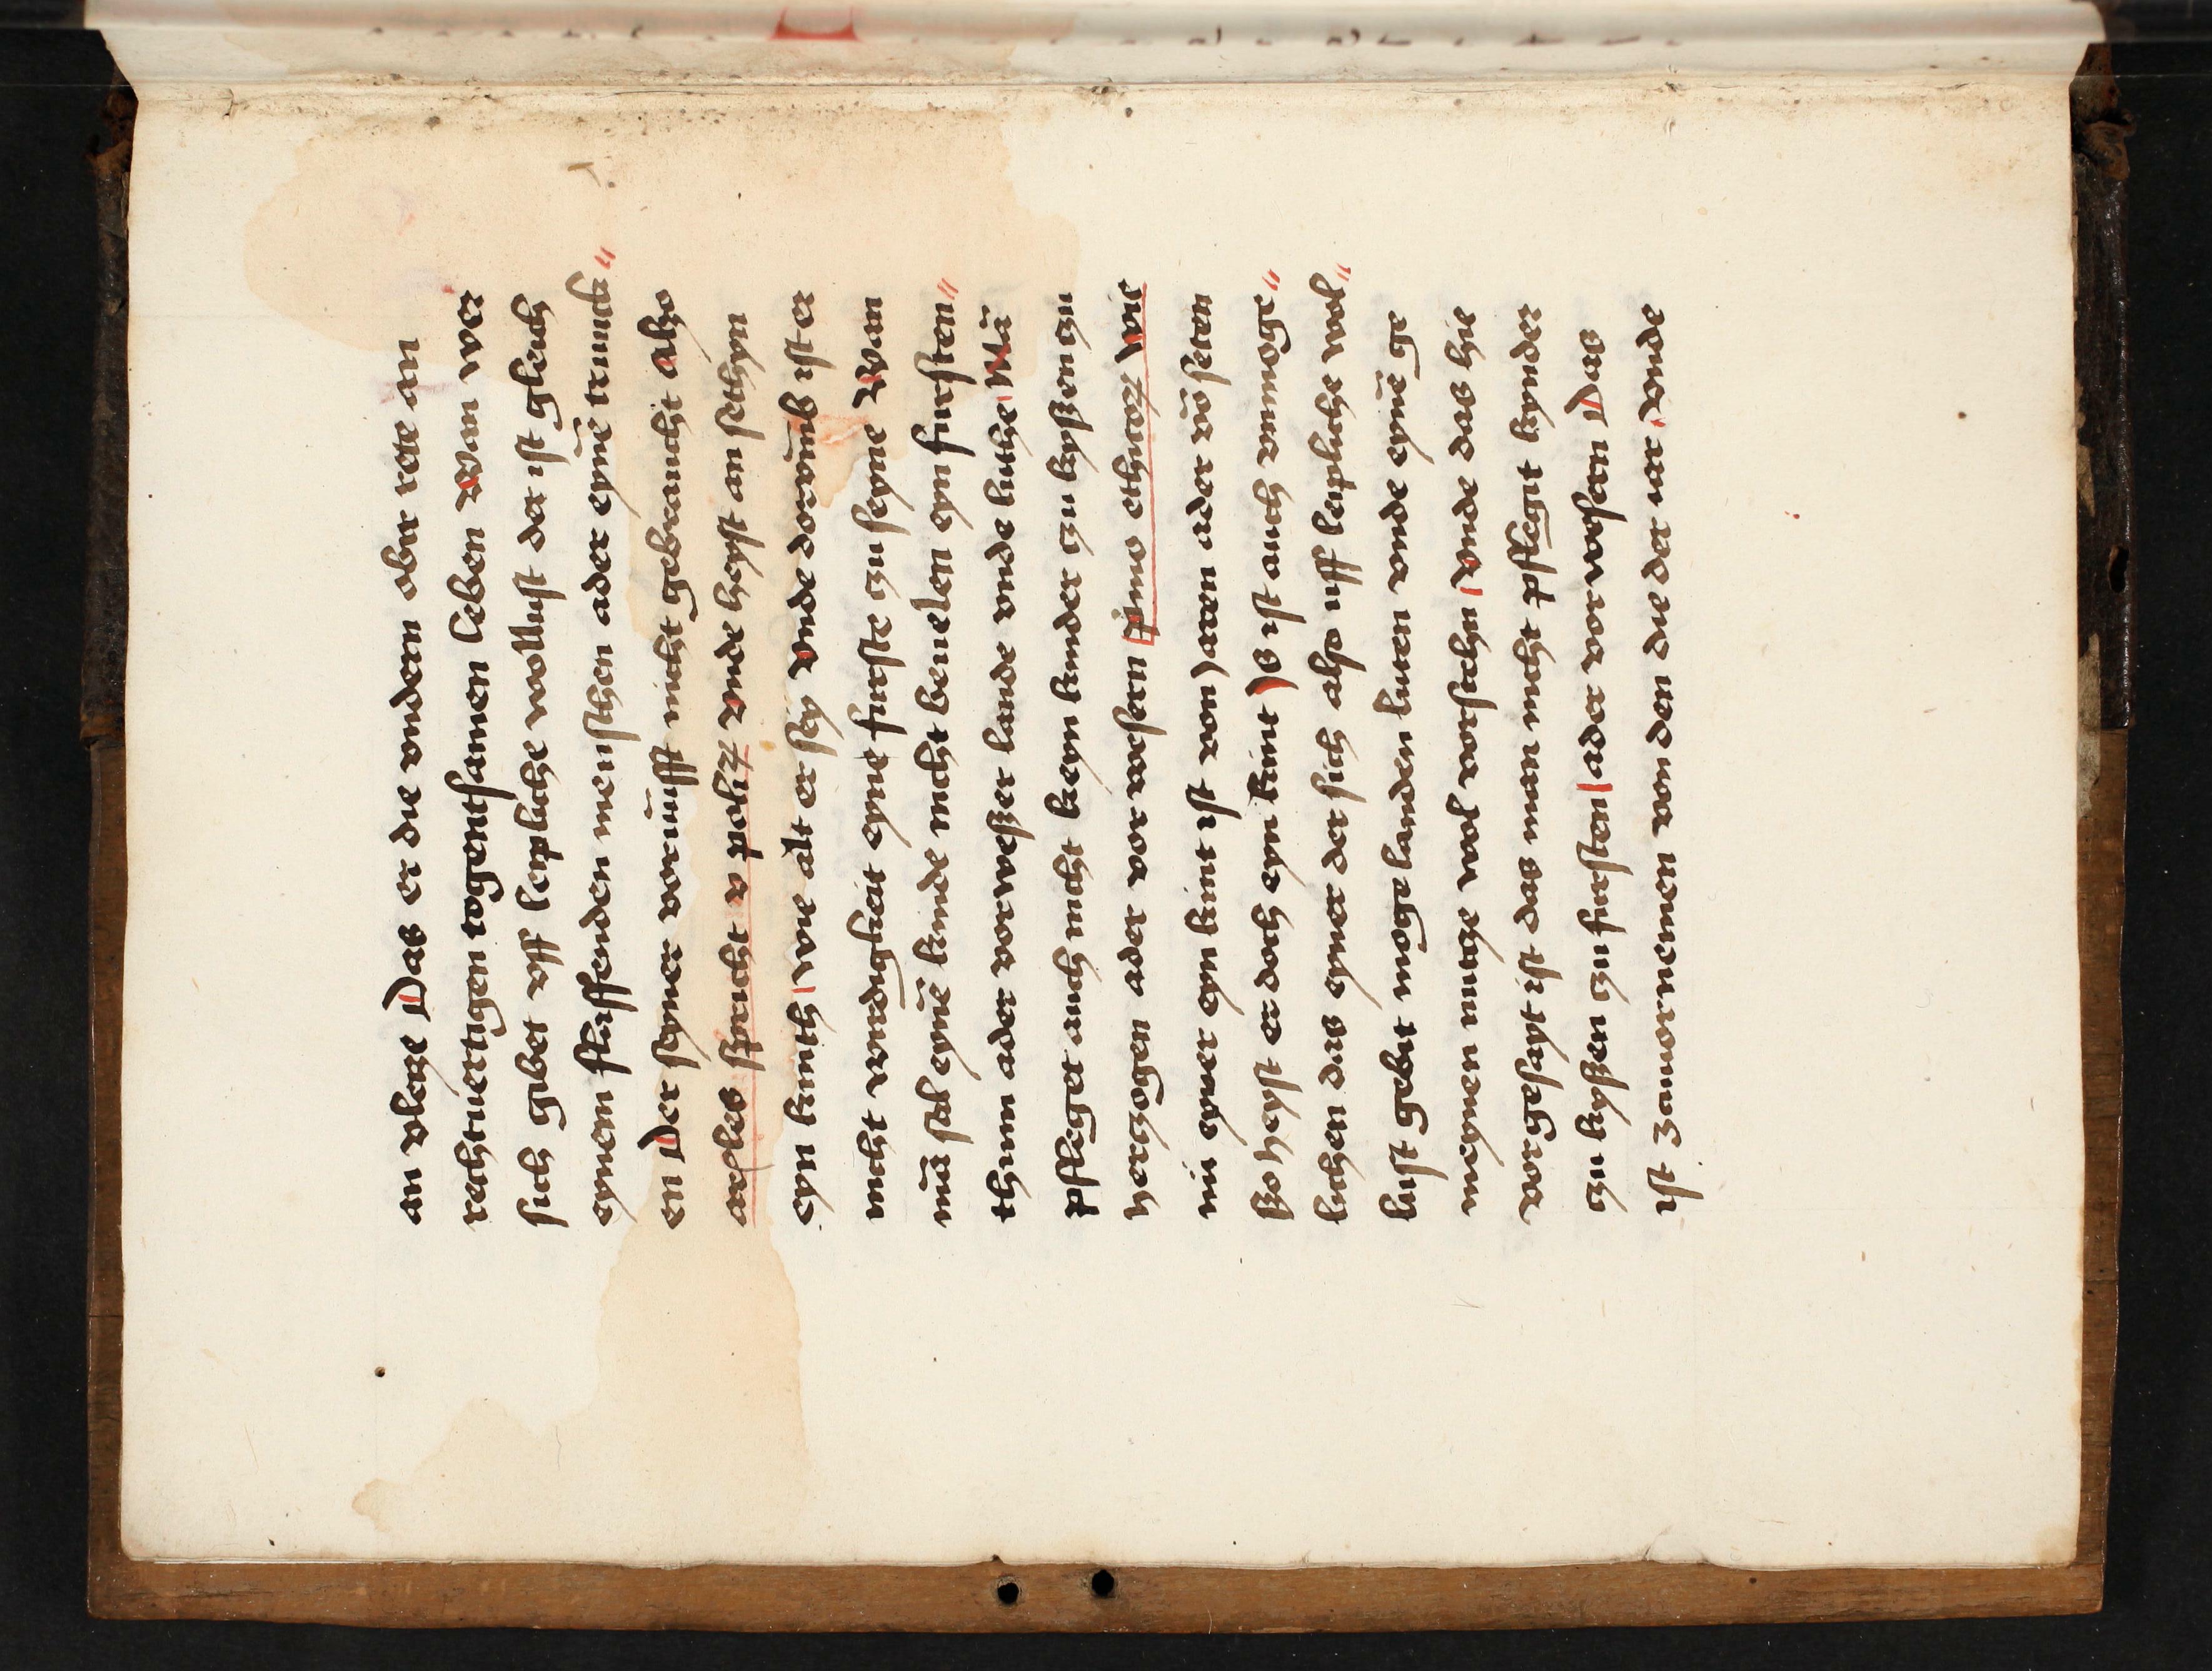 an vleyze Das er die vndern ober rete an
rechtuertigen togentsamen leben Wan wer
sich gibet vff leipliche wollust der ist gleich
eynem slaffenden menschen ader eynē trunck〃
en Der syner vornūfft nicht gebraucht alzo
arles spricht v poliꝝ vnde heyst an sethyn
eyn kinth wie alt er sey vnde dorūmb ist er
nicht wirdigkeit eyne furste zu seyne Wan
mā sal eynē kinde nicht beuelen eyn fursten〃
thum ader vorweßer lande vnde luthe Mā
pfleget auch nicht keyn kinder zu kyßen zu
herzogen ader vorwesern pimo ethicoꝝ Wie
nu eyner eyn kint ist von jaren ader vō seten
ßo heyst er doch eyn kint Es ist auch vnmoge〃
lichen das eyner der sich also uff leipliche wol〃
lust gebit moge landen luten vnde eynē ge
meynen nutze wol vorstehn vnde das hie
vorgesayt ist das man nicht pflegit kynder
zu kyßen zu fursten ader vorwesern Das
ist zauornemen von den die der iar vnde